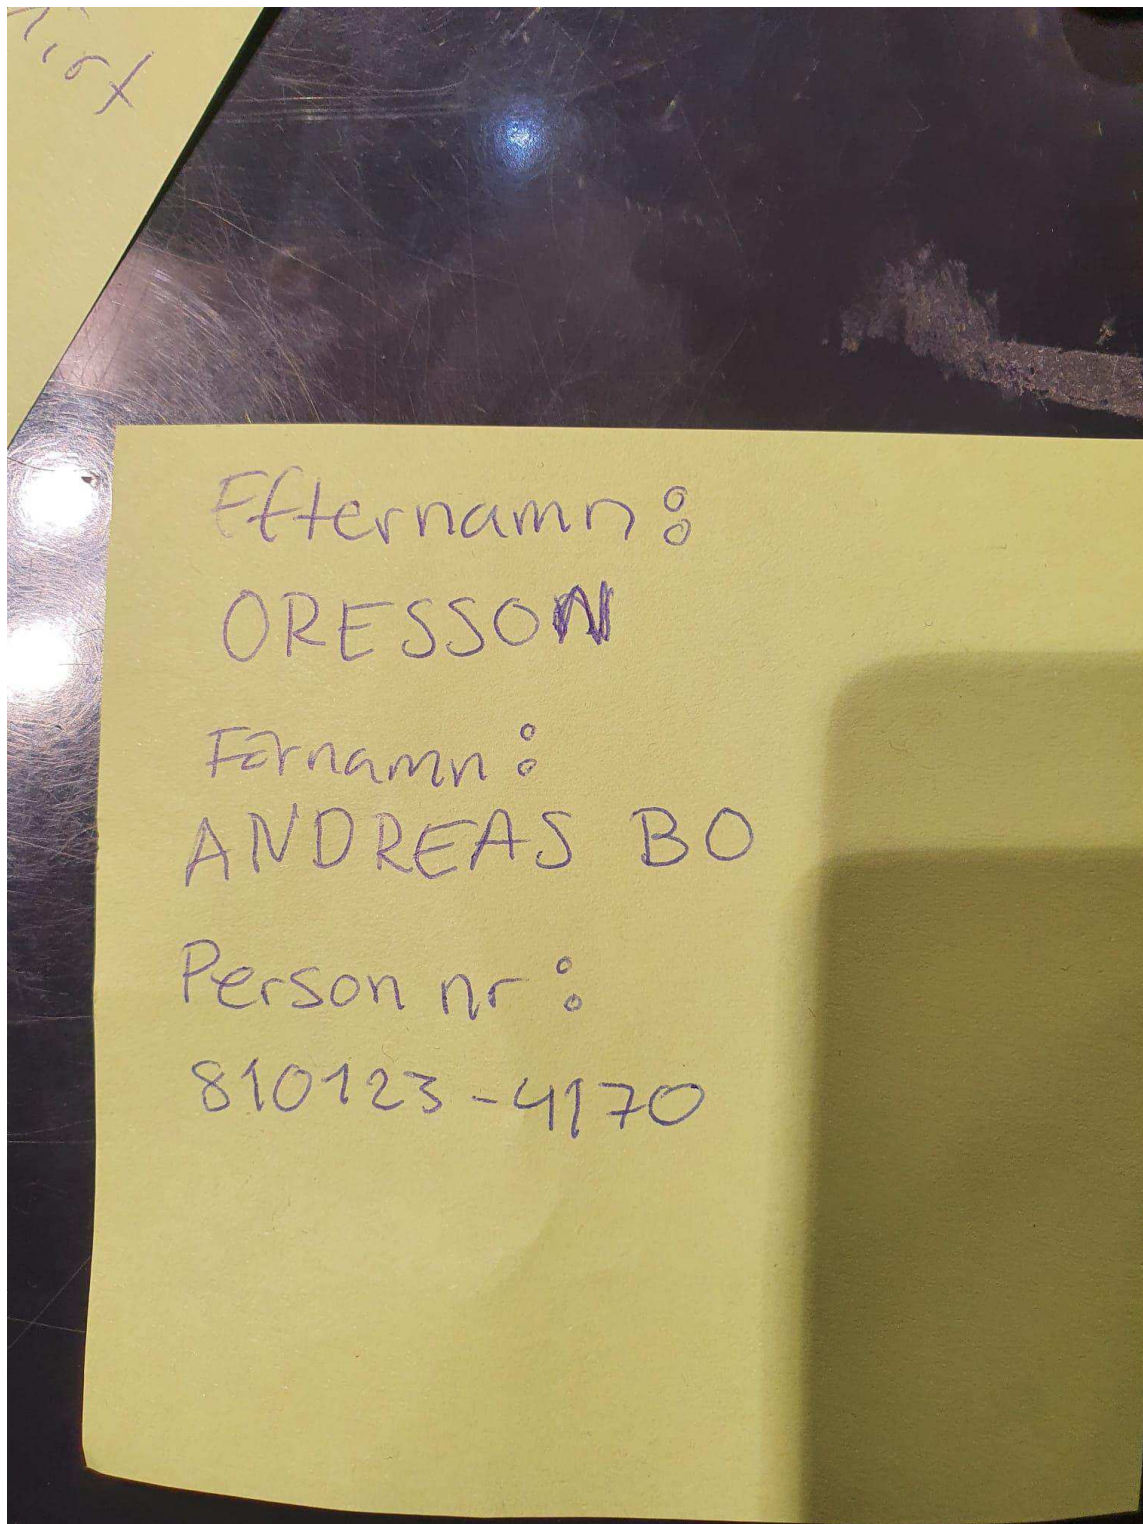 Efternamn:
ORESSON
Förnamn:
ANDREAS BO
Person nr:
810123-4170